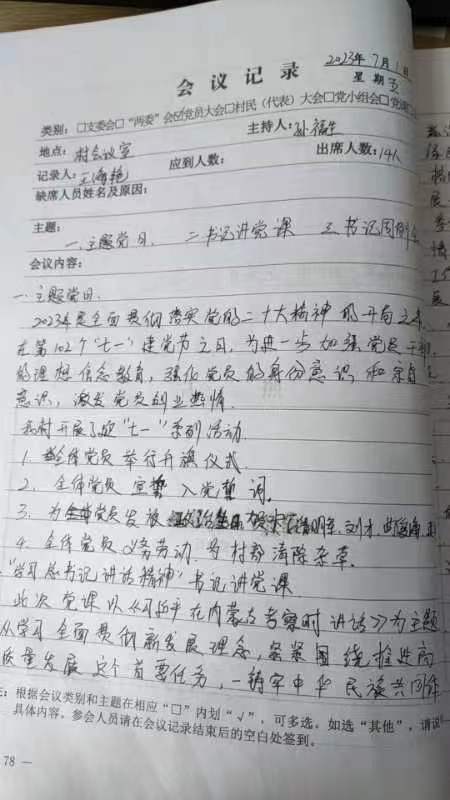 会议记录
2023年7月1日
星期五
类别：□支委会□“两委”会☑党员大会□村民（代表）大会□党小组会□党课
地点：村会议室
主持人：孙福生
记录人：王海艳
应到人数：
出席人数：14人
缺席人员姓名及原因：
主题：
一.主题党日、 二书记讲党课 三 书记
会议内容：
一.主题党日.
2023年是全面贯彻落实党的二十大精神的开局之年，
在第102个“七一”建党为之日，为进一步加强党员干部
的理想信念教育，强化党员的身份意识和
意识，激发党员创业热情.
我村开展了迎“七一”系列活动.
1. 全体党员举行升旗仪式
2. 全体党员宣誓 入党誓词.
3. 为 党员发放
4. 全体党员义务劳动 为村 清除杂草.
“学习总书记讲话精神”书记讲党课
此次党课以《习近平在内蒙古考察时讲话》为主题
从学习全面贯彻新发展理念，紧紧围绕推进高
质量发展这个首要任务，一 铸牢中华民族共同体
注：根据会议类别和主题在相应“□”内划“√”，可多选，如选“其他”，请
具体内容。参会人员请在会议记录结束后的空白处签到。
78 —